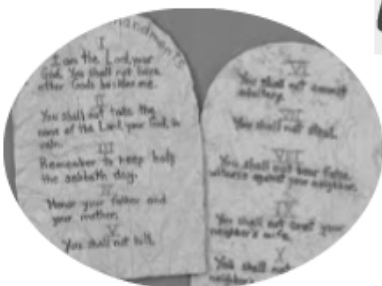 I
I am the Lord your
God. You shall not have
other Gods besides me.
II
You shall not take the
name of the Lord your God in
vain.
III
Remember to keep holy
the sabbath day.
IV
Honor your father and
your mother.
V
You shall not kill.
VI
You shall not commit
adultery.
VII
You shall not steal.
VIII
You shall not bear false
witness against your neighbor.
IX
You shall not covet your
neighbor's wife.
X
You shall not
neighbor's